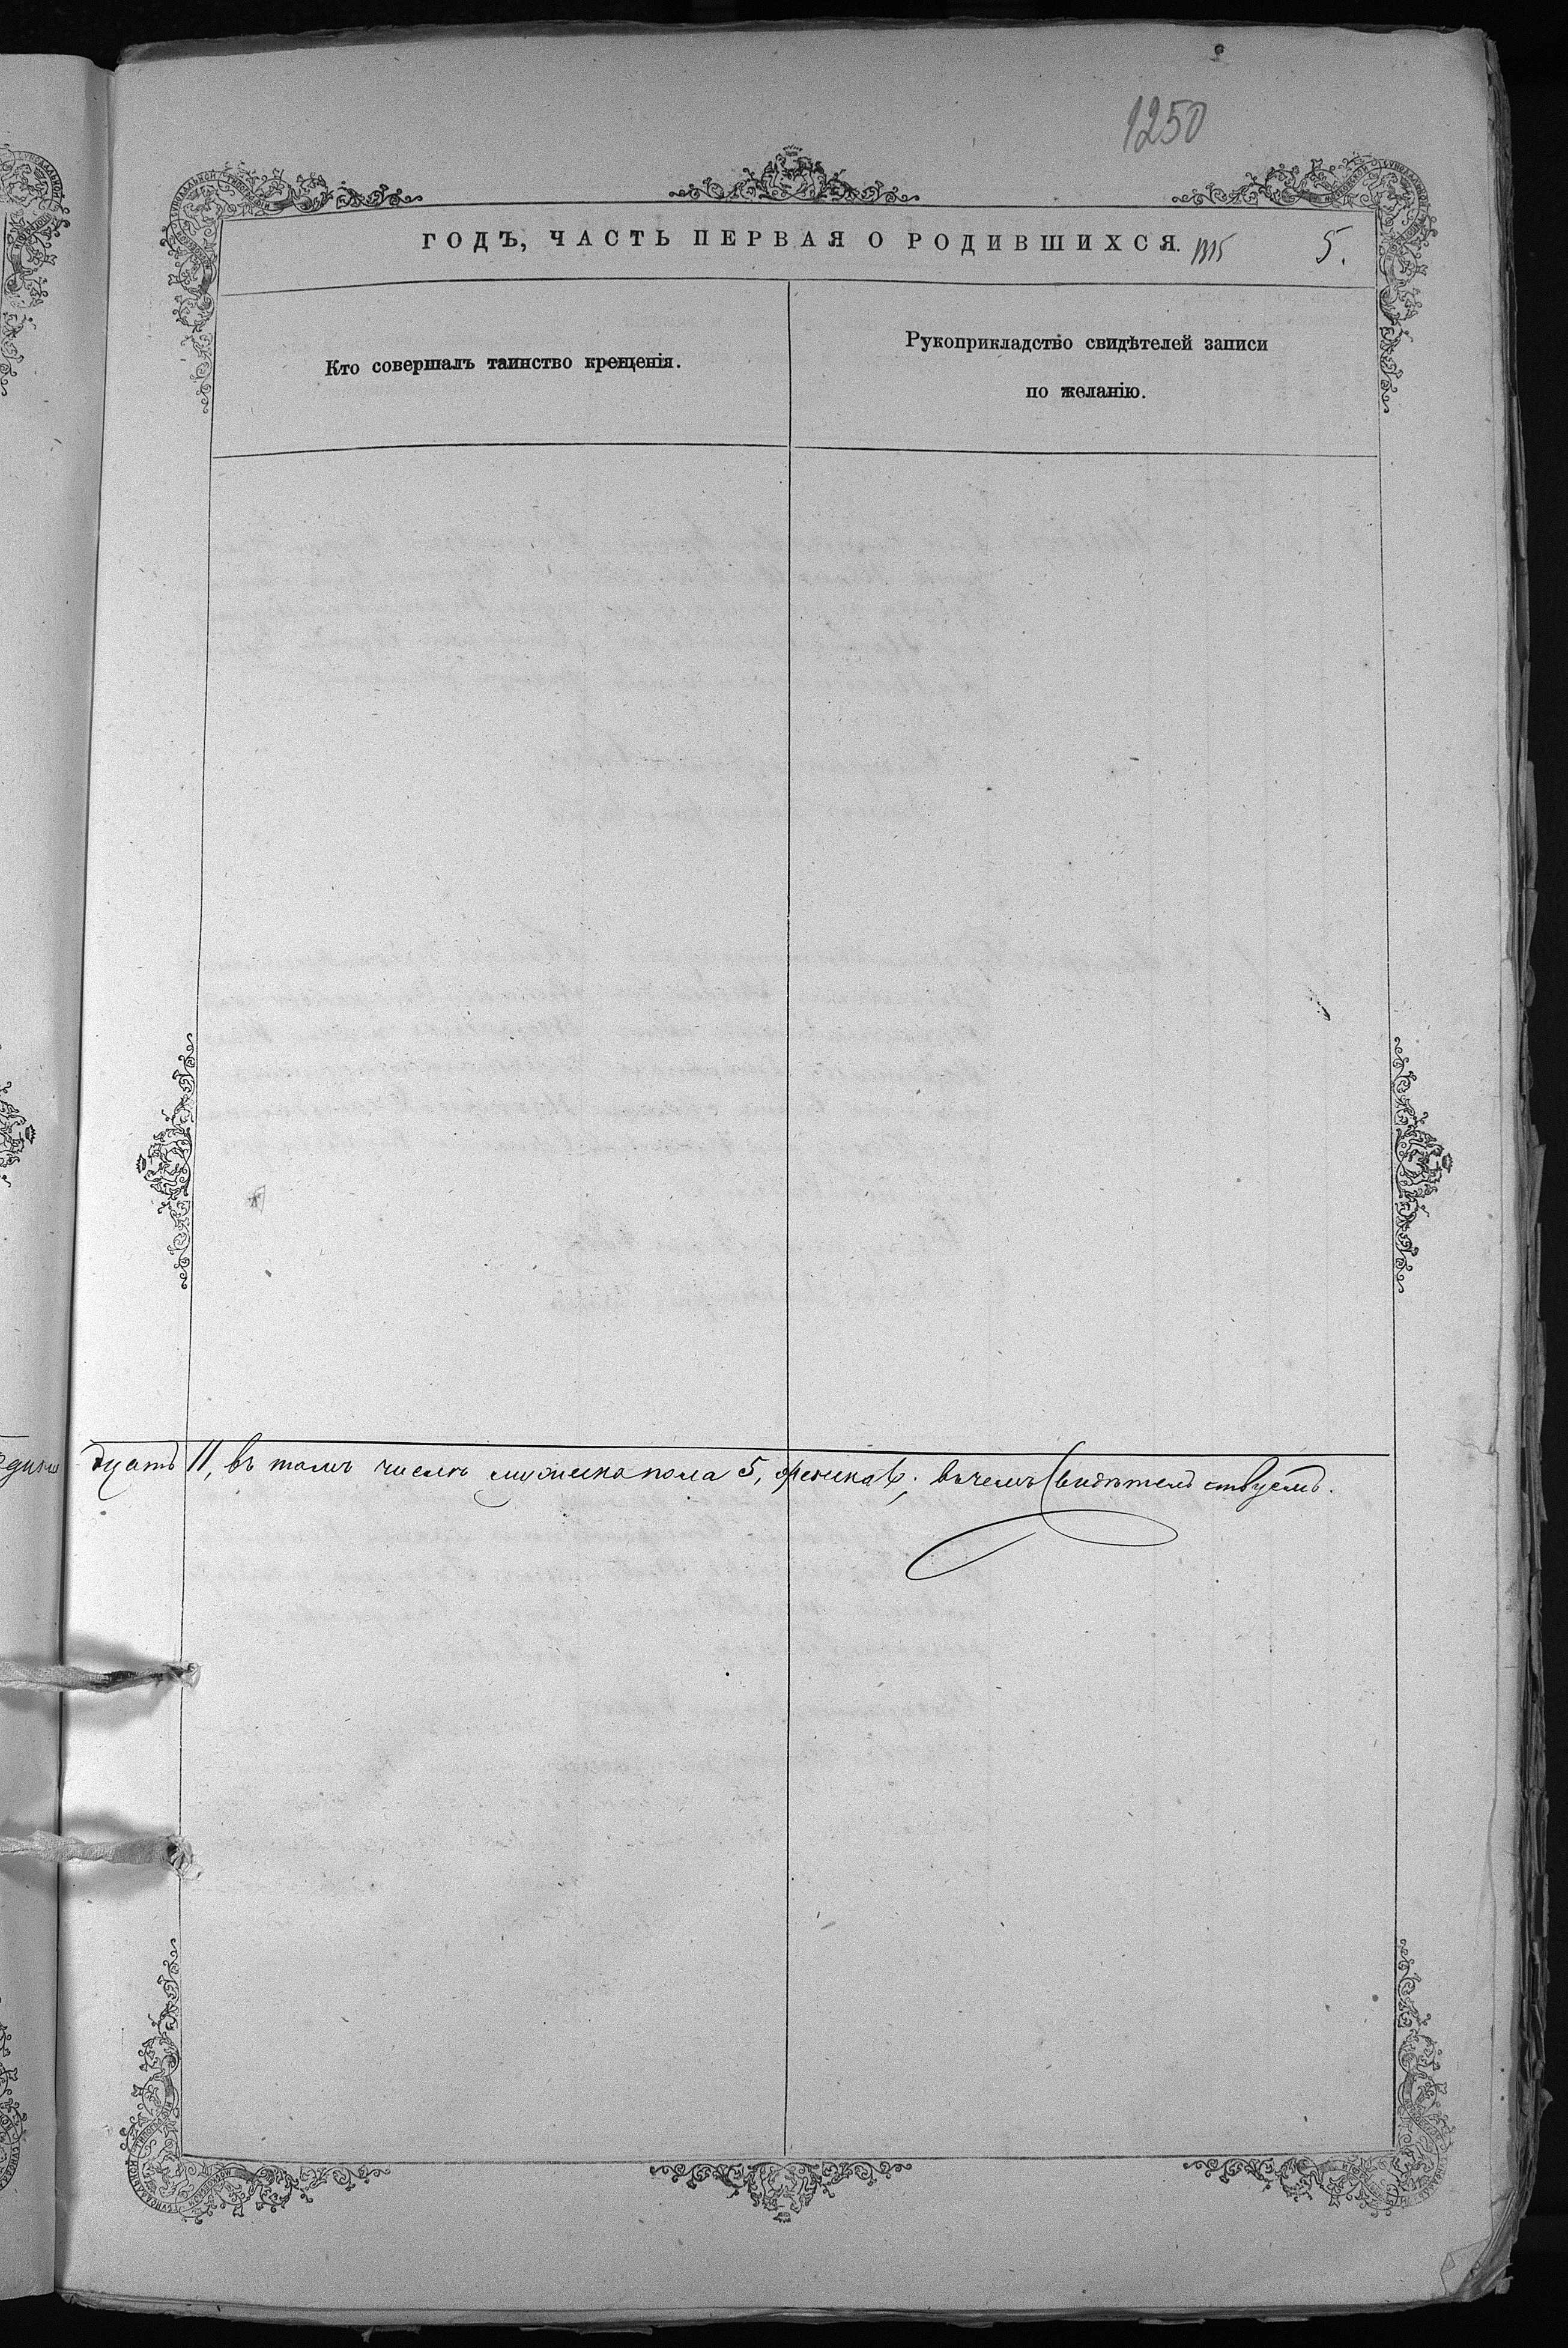 1250
ГОДЪ, ЧАСТЬ ПЕРВАЯ О РОДИВШИХСЯ. 5.
Кто совершалъ таинство крещенія.
Рукоприкладство свидѣтелей записи
по желанію.
дцать 11, въ томъ числѣ мужеска пола 5, женска 6; въ чемъ свидѣтельствуемъ.